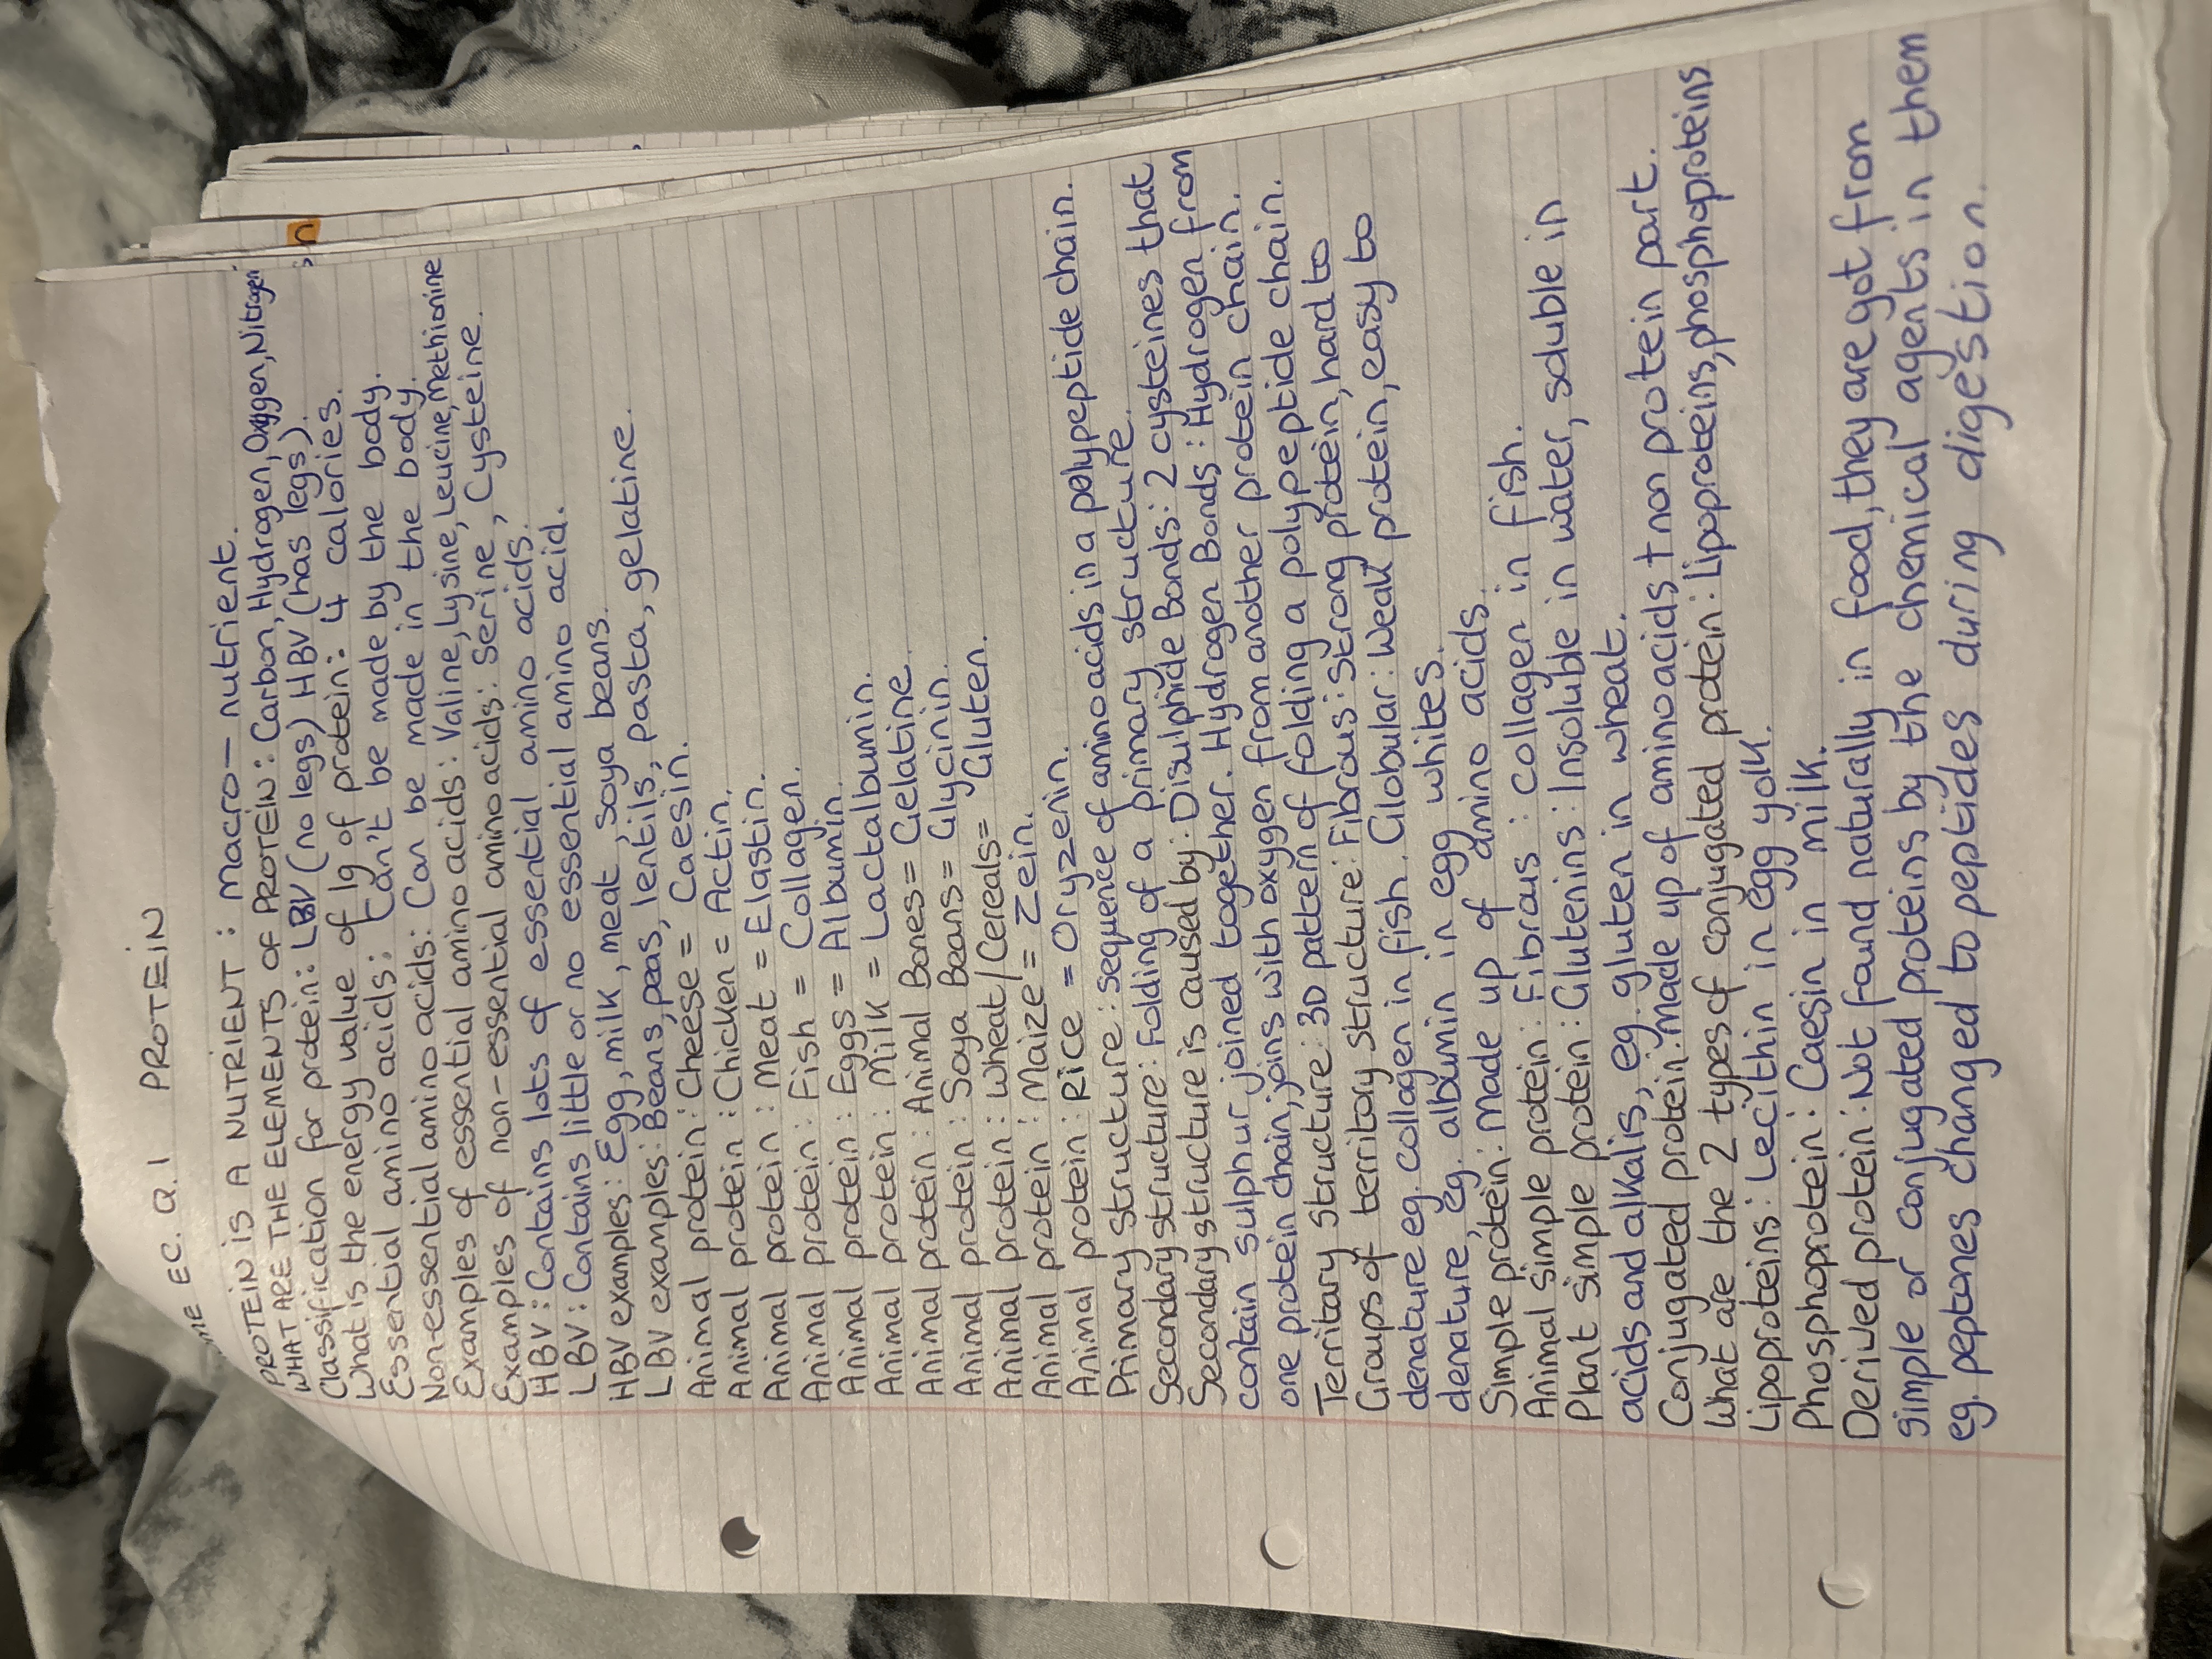 ME EC. Q. 1 PROTEIN
PROTEIN IS A NUTRIENT : Macro-nutrient.
WHAT ARE THE ELEMENTS OF PROTEIN: Carbon, Hydrogen, Oxygen, Nitrogen
Classification for protein: LBV (no legs) HBV (has legs).
What is the energy value of 1g of protein: 4 calories.
Essential amino acids: Can't be made by the body.
Non-essential amino acids: Can be made in the body.
Examples of essential amino acids: Valine, Lysine, Leucine, Methionine
Examples of non-essential amino acids: Serine, Cysteine.
HBV: Contains lots of essential amino acids.
LBV: Contains little or no essential amino acid.
HBV examples: Egg, milk, meat, soya beans.
LBV examples: Beans, peas, lentils, pasta, gelatine.
Animal protein: Cheese = Caesin.
Animal protein: Chicken = Actin.
Animal protein: Meat = Elastin.
Animal protein: Fish = Collagen.
Animal protein: Eggs = Albumin.
Animal protein: Milk = Lactalbumin.
Animal protein: Animal Bones = Gelatine.
Animal protein: Soya Beans = Glycinin.
Animal protein: Wheat/Cereals = Gluten.
Animal protein: Maize = Zein.
Animal protein: Rice = Oryzenin.
Primary structure: sequence of amino acids in a polypeptide chain.
Secondary structure: Folding of a primary structure.
Secondary structure is caused by: Disulphide Bonds: 2 cysteines that
contain sulphur joined together. Hydrogen Bonds: Hydrogen from
one protein chain, joins with oxygen from another protein chain.
Territary structure: 3D pattern of folding a polypeptide chain.
Groups of territary structure: Fibrous: strong protein, hard to
denature eg. collagen in fish. Globular: Weak protein, easy to
denature, eg. albumin in egg whites.
Simple protein: Made up of amino acids.
Animal simple protein: Fibrous: collagen in fish.
Plant simple protein: Glutenins: Insoluble in water, soluble in
acids and alkalis, eg. gluten in wheat.
Conjugated protein: Made up of amino acids + non protein part.
What are the 2 types of conjugated protein: Lipoproteins, phosphoproteins
Lipoproteins: Lecithin in egg yolk.
Phosphoprotein: Caesin in milk.
Derived protein: Not found naturally in food, they are got from
simple or conjugated proteins by the chemical agents in them
eg. peptones changed to peptides during digestion.
n